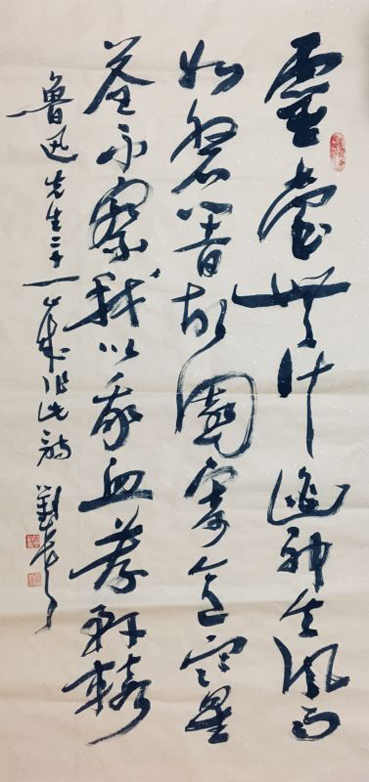 靈臺無計逃神矢風雨
如磐闇故園寄意寒星
荃不察我以我血薦軒轅
魯迅先生二十一歲作此詩 劉